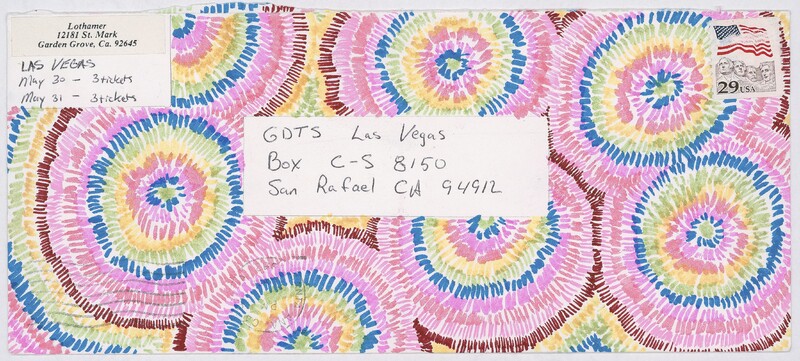 Lothamer
12181 St. Mark
Garden Grove, Ca. 92645
LAS VEGAS
May 30 - 3 tickets
May 31 - 3 tickets
29 USA
GDTS Las Vegas
Box C-S 8150
San Rafael CA 94912